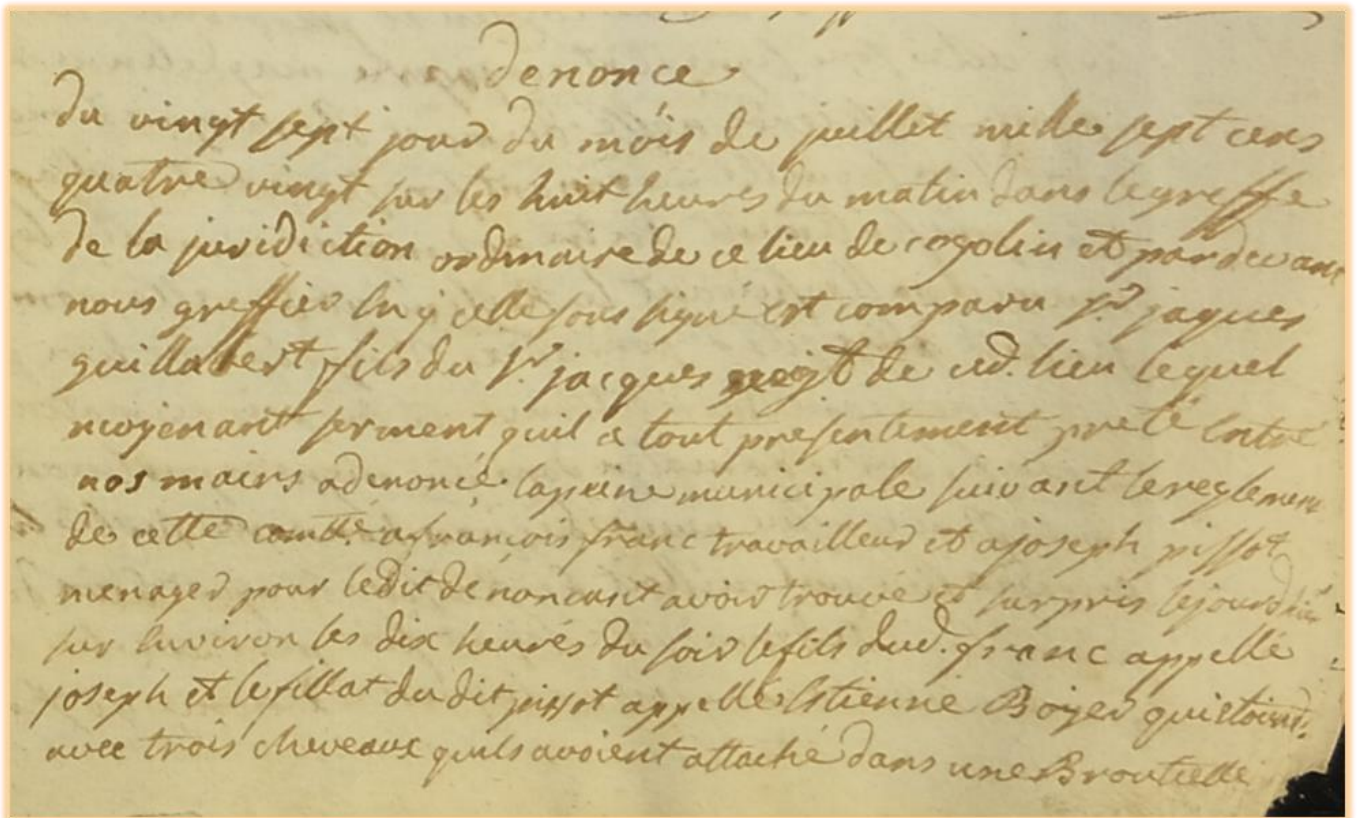 denonce
du vingt sept jour du mois de juillet mille sept cens
quatre vingt sur les huit heures du matin dans le greffe
de la juridiction ordinaire de ce lieu de cogolin et pardevant
nous greffier en ycelle sous signé est comparu Sr. jaques
guillabert fils du Sr. jacques de ced. lieu lequel
moyenant serment quil a tout presentement preté entre
nos mains a denoncé la peine municipale suivant le reglement
de cette comté. a francois franc travailleur et a joseph pissot
menager pour ledit denoncant avoir trouvé et surpris le jour dhier
sur environ les dix heures du soir le fils dud. franc appellé
joseph et le fillat du dit pissot appellé Estienne Boyer qui etoient
avec trois cheveaux quils avoient attaché dans une